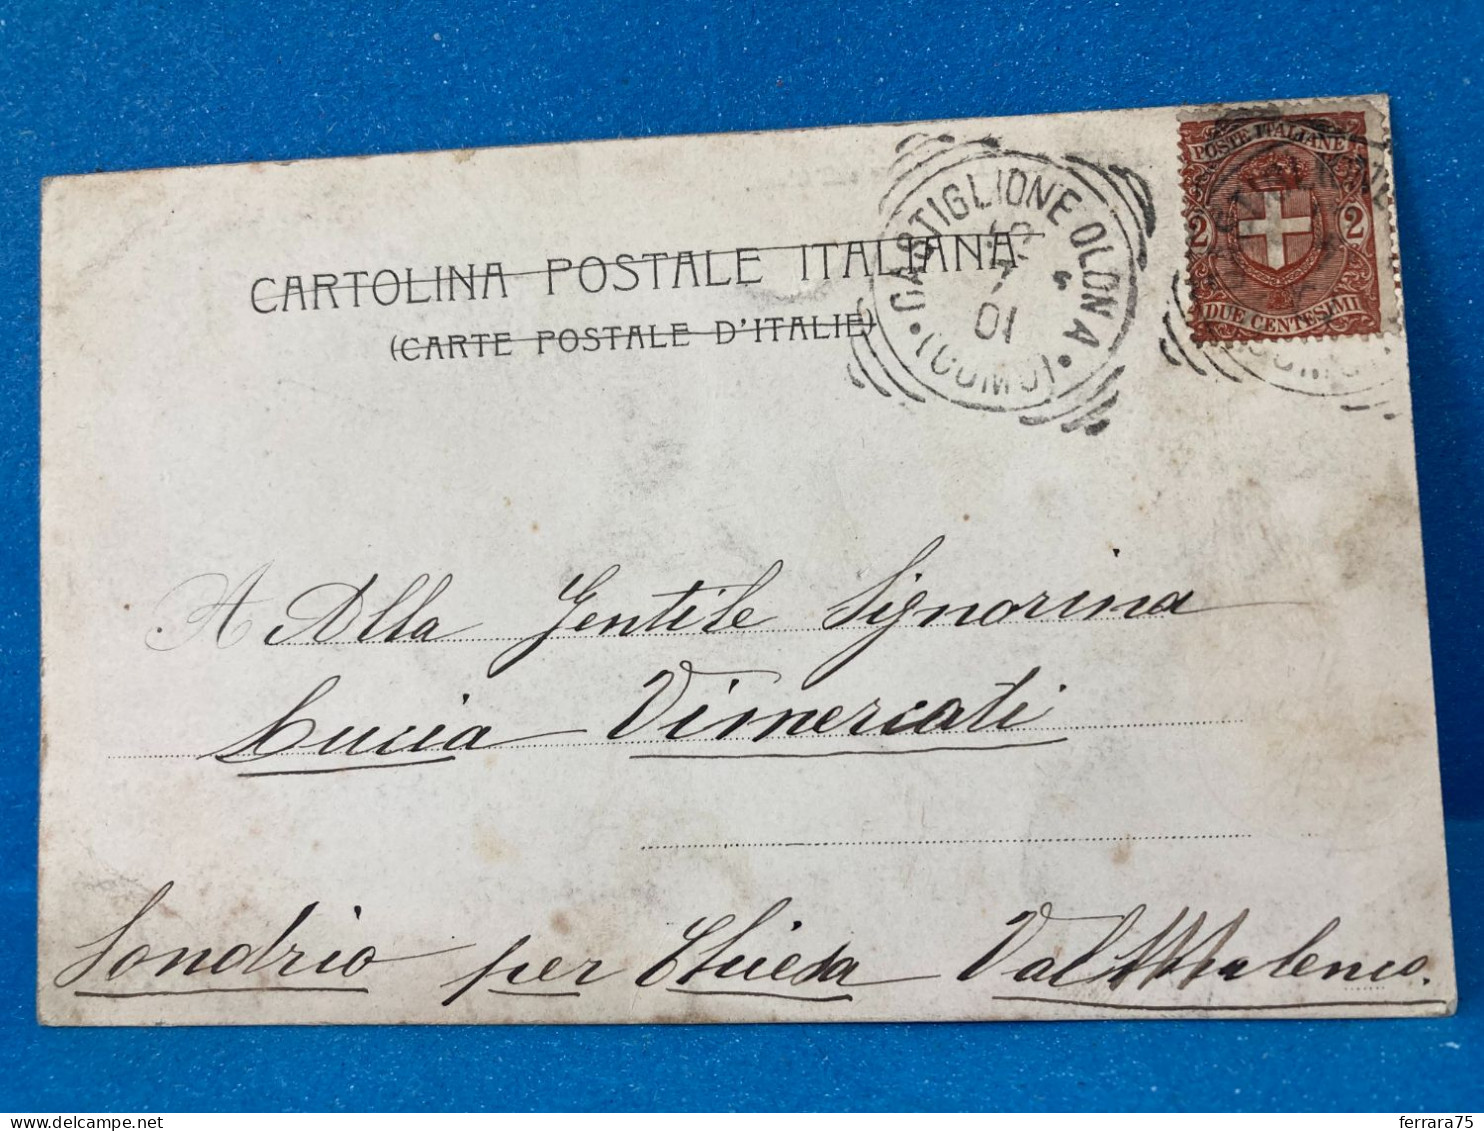 CARTOLINA POSTALE ITALIANA
(CARTE POSTALE D'ITALIE)
CASTIGLIONE OLONA
01
(COMO)
POSTE ITALIANE
2 2
DUE CENTESIMI
A Alla Gentile Signorina
Lucia Vimercati
Sondrio per Chiesa Val Malenco.
ferrara75